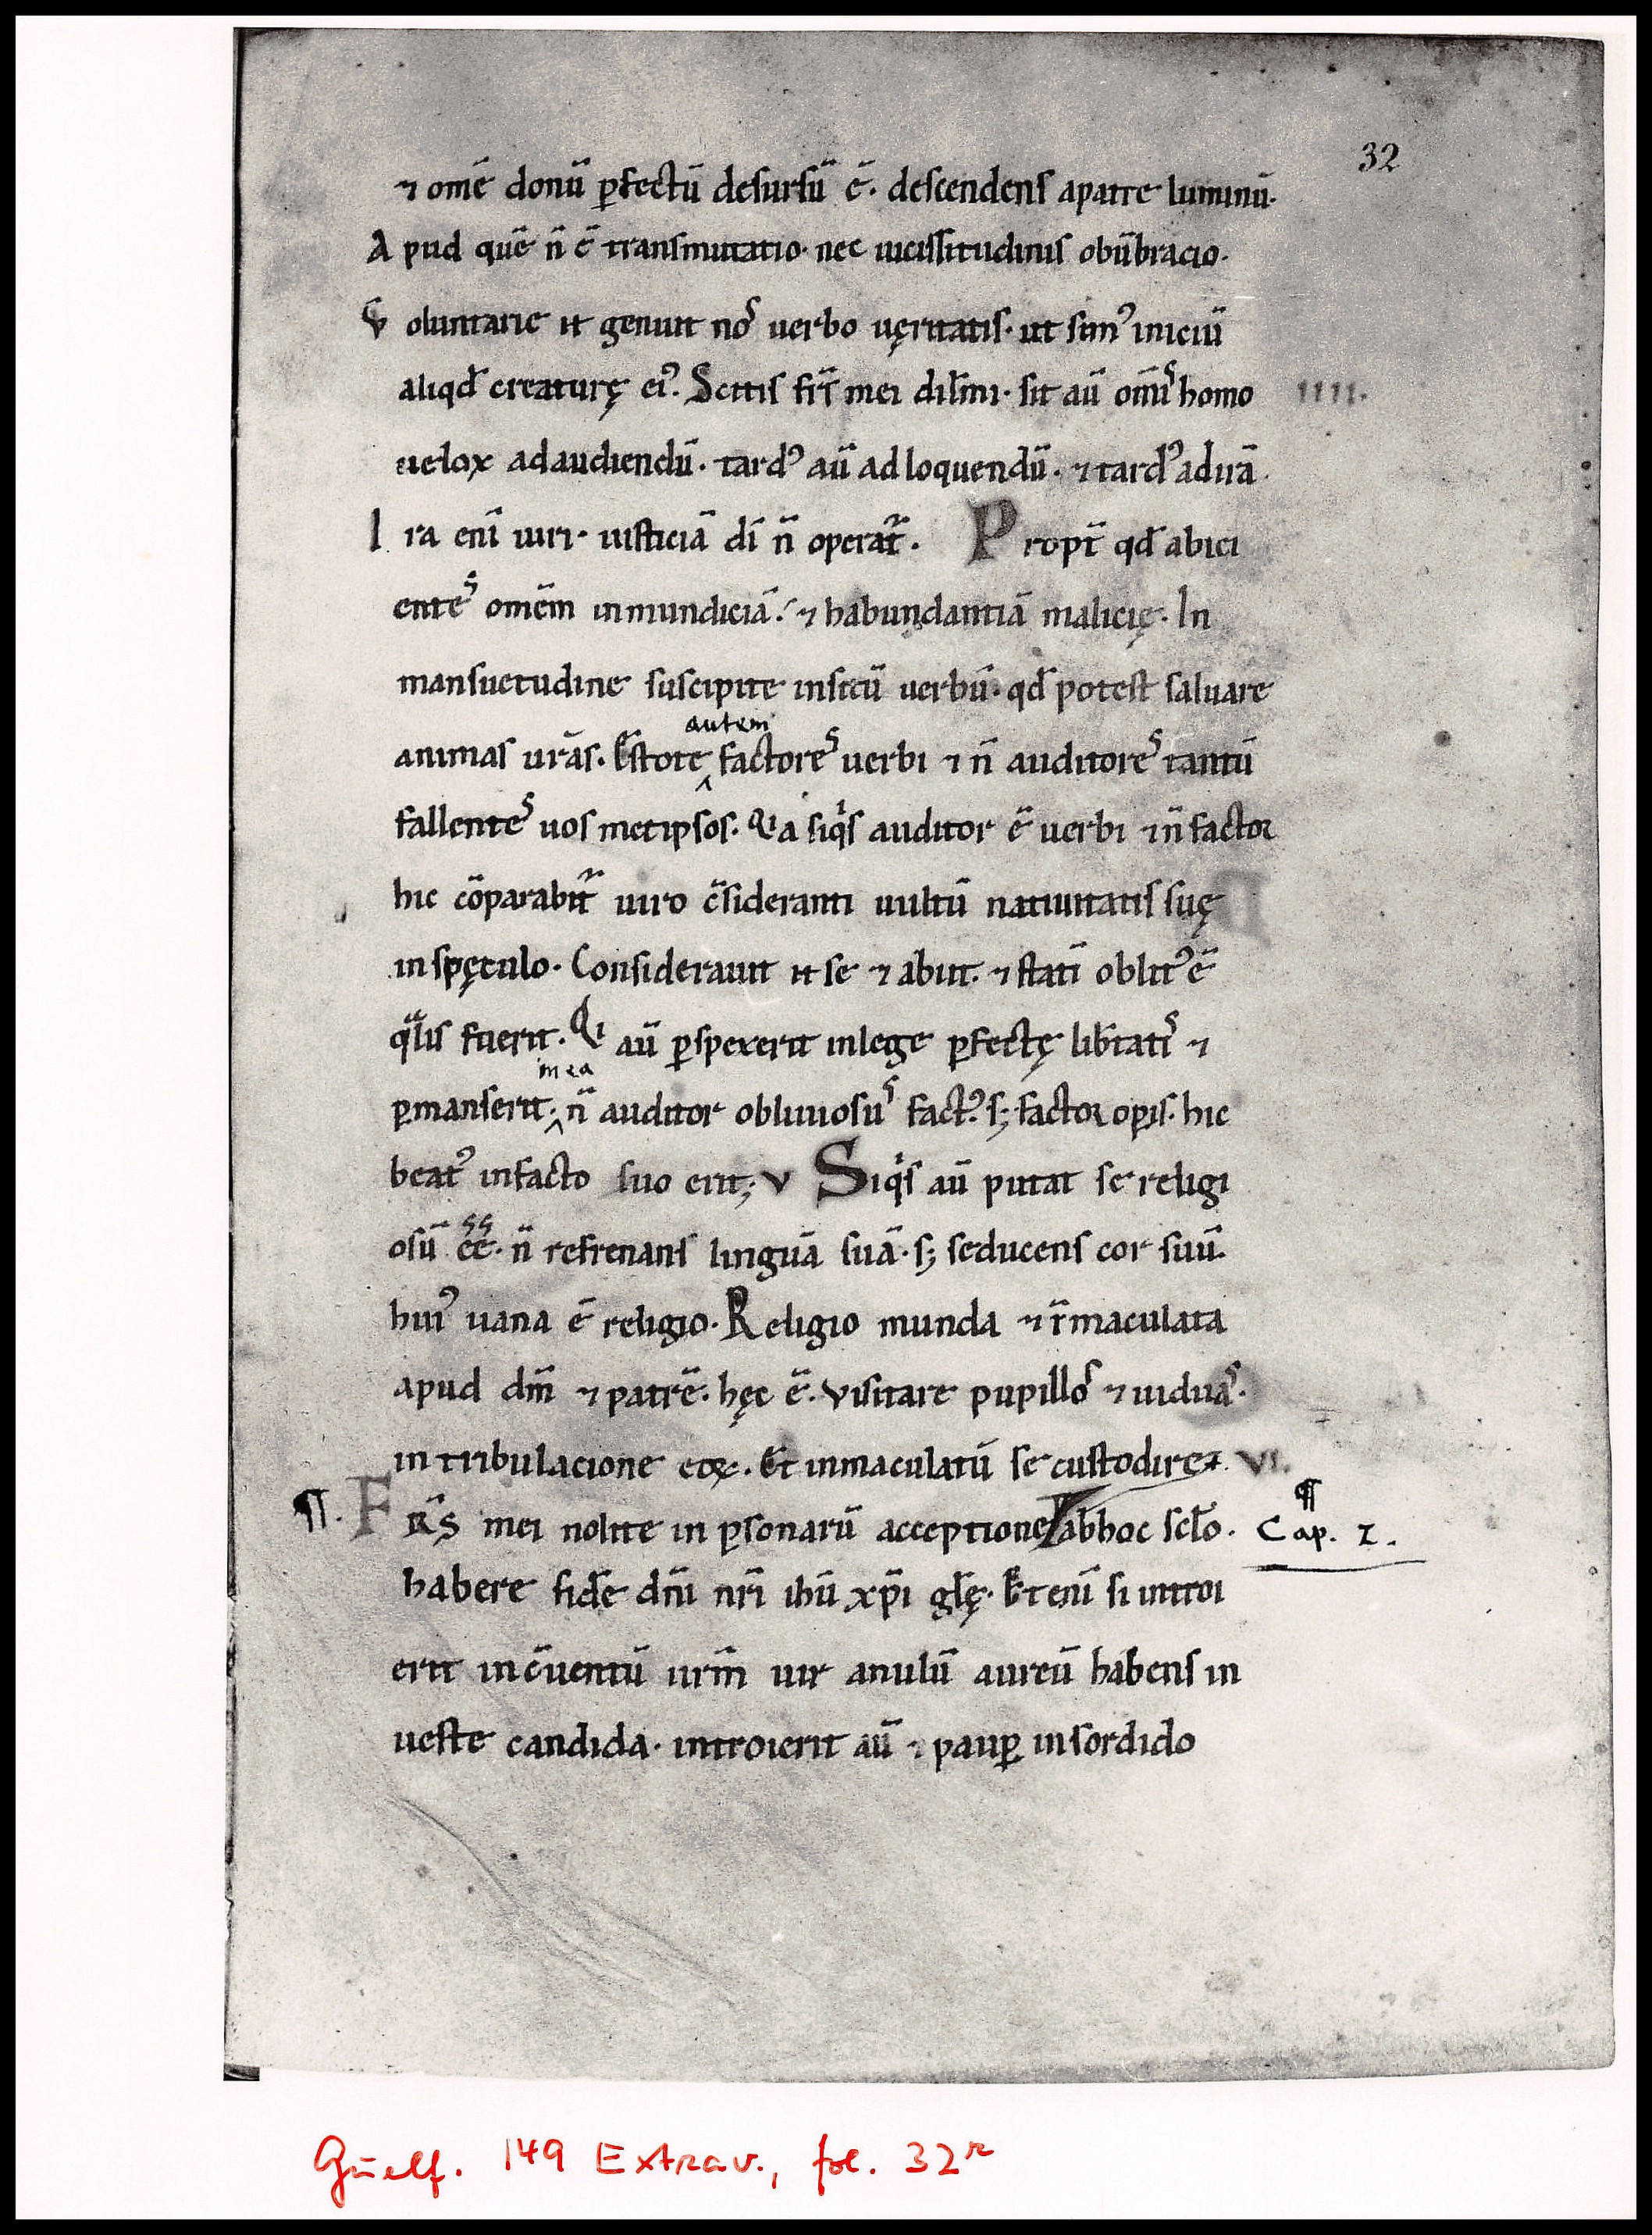 32
⁊ om̄e donū ꝑfectū desursū ē. descendens apatre luminū.
Apud quē n̄ ē transmutatio. nec uicissitudinis obūbracio.
Voluntarie ͛t genuit noˢ uerbo uęritatis. ut simꝰ iniciū
aliqd̄ creaturę eiꝰ. Scitis fr̄s mei dil̄mi. sit aū om̄iˢ homo
IIII.
uelox adaudiendū. tardꝰ aū ad loquendū. ⁊ tardꝰ adirā.
Ira enī uiri. iusticiā dī n̄ operat᷑. Propt̄ qd̄ abici
enteˢ omēm inmundiciā. ⁊ habundantiā malicię. In
mansuetudine suscipite insitū uerbū. qd̄ potest saluare
autem
animas ur̄as. Estote factoreˢ uerbi ⁊ n̄ auditoreˢ tantū
fallenteˢ uos metipsos. Qͥa siqͥs auditor ē uerbi ⁊ n̄ factor
hic cōparabit᷑ uiro c̄sideranti uultū natiuitatis suę
in spęculo. Considerauit ͛t se ⁊ abiit. ⁊ statī oblitꝰ ē
qͣlis fuerit. Qͥ aū ꝑspexerit inlege ꝑfectę lib̄tatiˢ ⁊
in ea
ꝑmanserit. n̄ auditor obliuiosuˢ factꝰ. s; factor oꝑis. hic
beatꝰ infacto suo erit; V Siqͥs aū putat se religi
ss
osū ēē. n̄ refrenans linguā suā. s; seducens cor suū.
huiꝰ uana ē religio. Religio munda ⁊ īmaculata
apud dm̄ ⁊ patrē. hęc ē. Visitare pupilloˢ ⁊ uiduaˢ.
in tribulacione eoꝝ. Et inmaculatū se custodire VI.
¶. Fr̄s mei nolite in ꝑsonarū acceptione abhoc scl̄o.
¶
Cap. 2.
habere fidē dn̄i nr̄i ihū xp̄i gl̄ę. Et enī si introi
erit inc̄uentū ur̄m uir anulū aureū habens in
ueste candida. introierit aū ⁊ pauꝑ insordido
Guelf. 149 Extrav., fol. 32ʳ